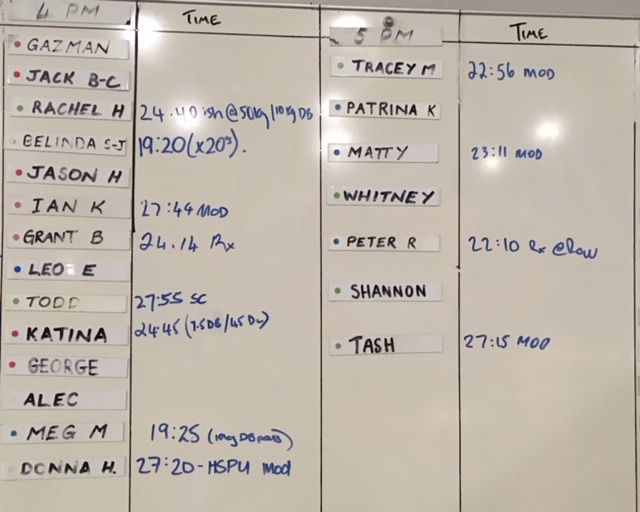 4 PM TIME
GAZMAN
JACK B-C
RACHEL H 24.40ish@50kg/10kg DB
BELINDA S-J 19:20(x20s).
JASON H
IAN K 27:49 MOD
GRANT B 24.14 Rx
LEO E
TODD 27:55 SC
KATINA 24:45 (7.5DB/45DL)
GEORGE
ALEC
MEG M 19:25 (
DONNA H. 27:20-HSPU Mod
5 PM TIME
TRACEY M 22:56 MOD
PATRINA K
MATTY 23:11 MOD
WHITNEY
PETER R 22:10 Rx @Row
SHANNON
TASH 27:15 MOD